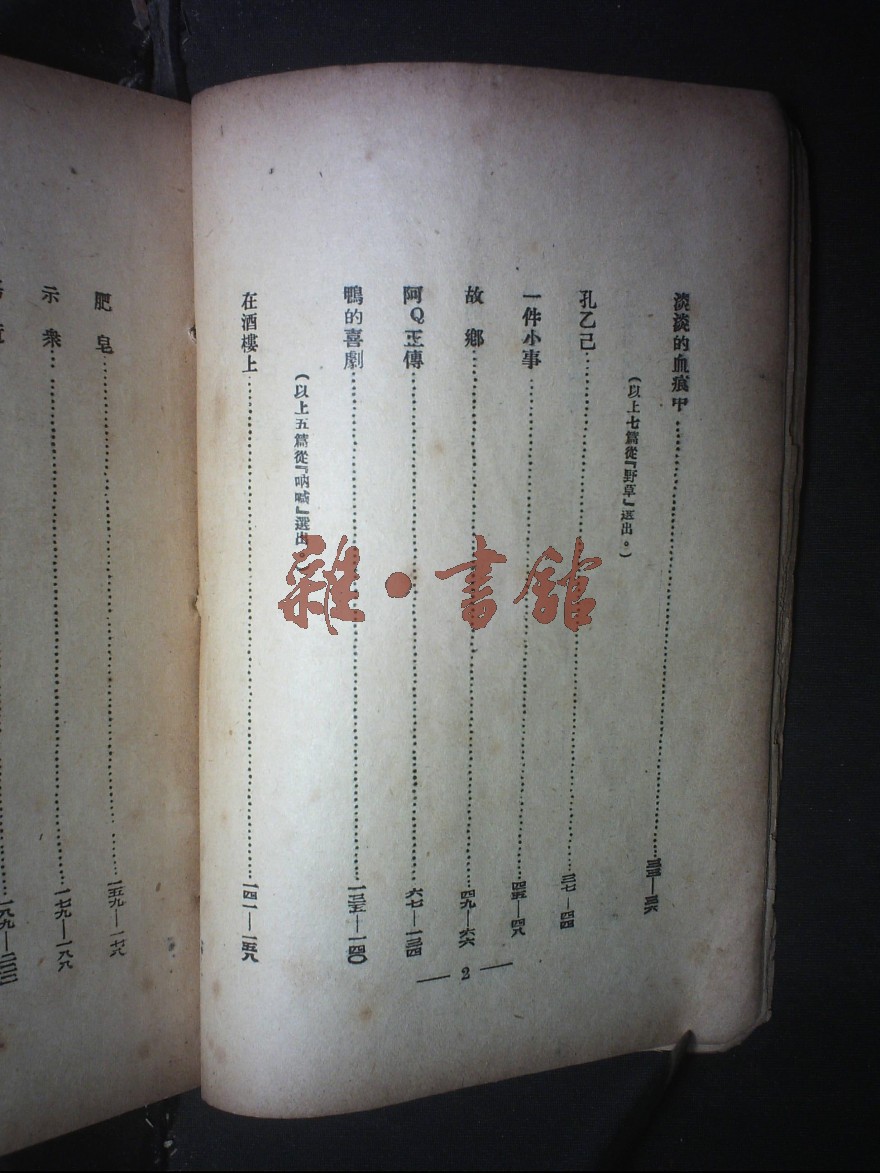 淡淡的血痕中……三三—三六
(以上七篇從『野草』選出。)
孔乙己……三七—四四
一件小事……四五—四八
故鄉……四九—六六
阿Q正傳……六七—一三四
鴨的喜劇……一三五—一四〇
(以上五篇從『吶喊』選出。)
在酒樓上……一四一—一五八
— 2 —
肥皂……一五九—一七八
示衆……一七九—一八八
一八九—二〇二
雜·書館